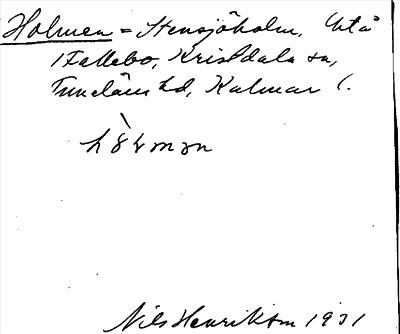 Holmen = Stensjöholm, utå
i Fallebo, Kristdala sn,
Tunaläns hd, Kalmar l.
Nils Henrikson 1931